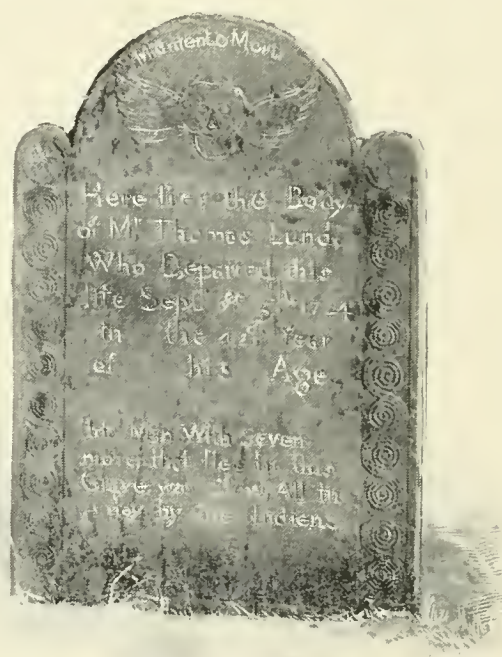 Memento Mori
Here lies the Body
of Mr Thomas Lund
Who Departed this
life Sept 5th 1724
in the 42d Year
of his Age
this Man With Seven
more that lies in this
Grave was Slew All in
A Day by the Indiens